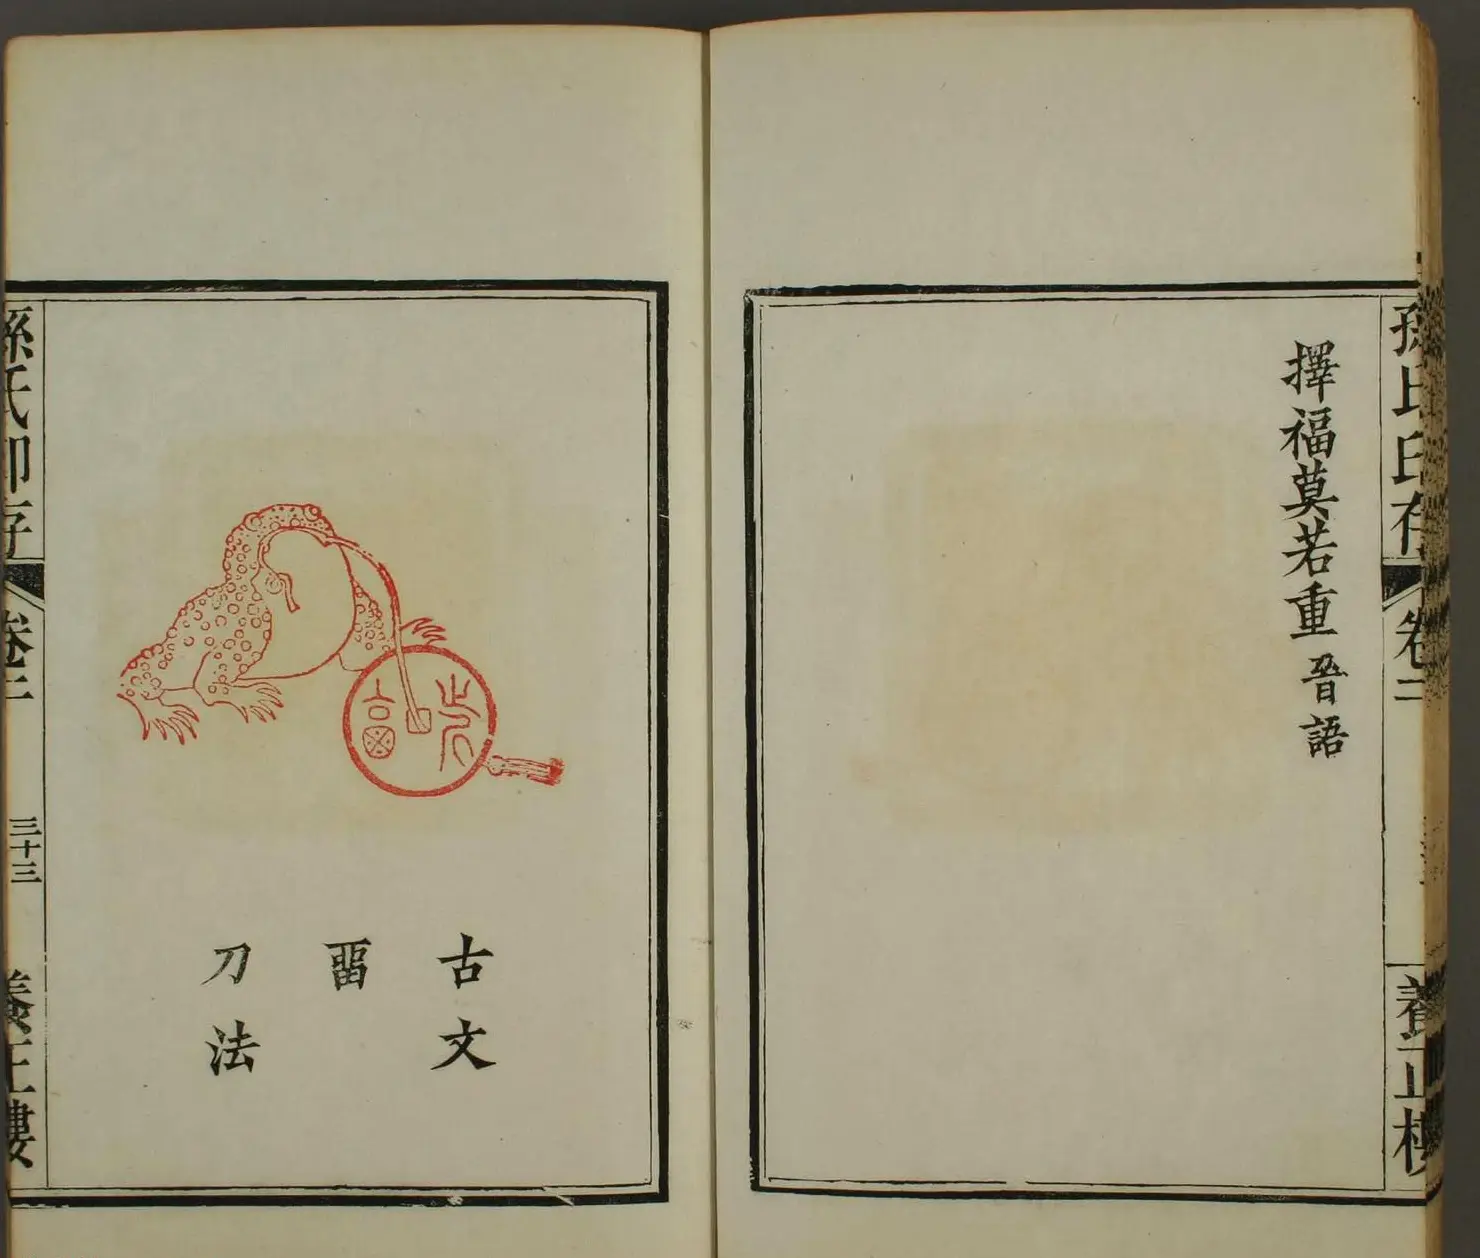 孫氏印存
卷二
養正樓
擇福莫若重 晉語
古文
畱
刀法
孫氏印存
卷二
三十三
養正樓